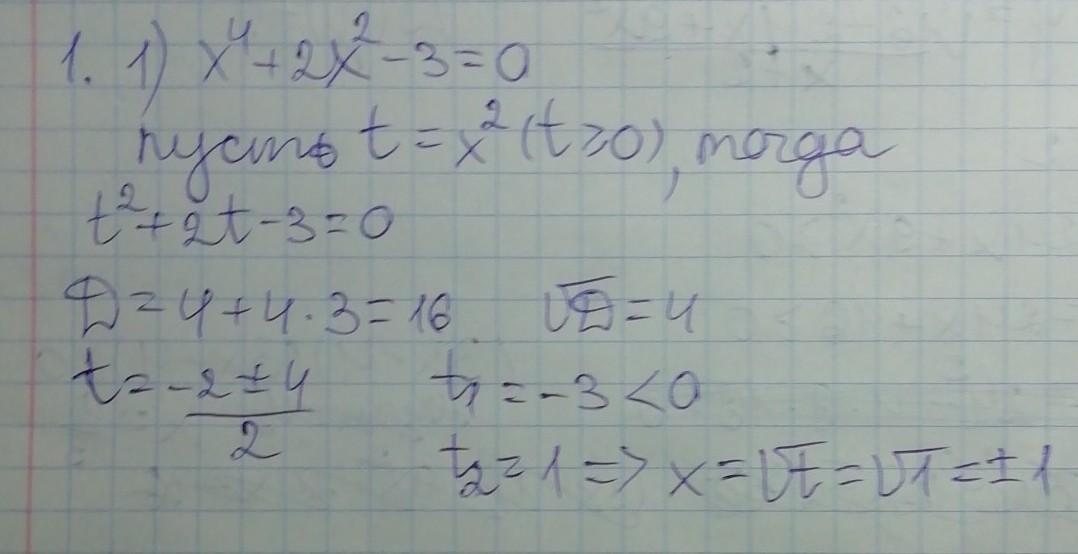 1. 1) x⁴+2x²-3=0
пусть t=x² (t≥0), тогда
t²+2t-3=0
D=4+4·3=16 √D=4
t=(-2±4)/2 t₁=-3<0
t₂=1 => x=√t=√1=±1